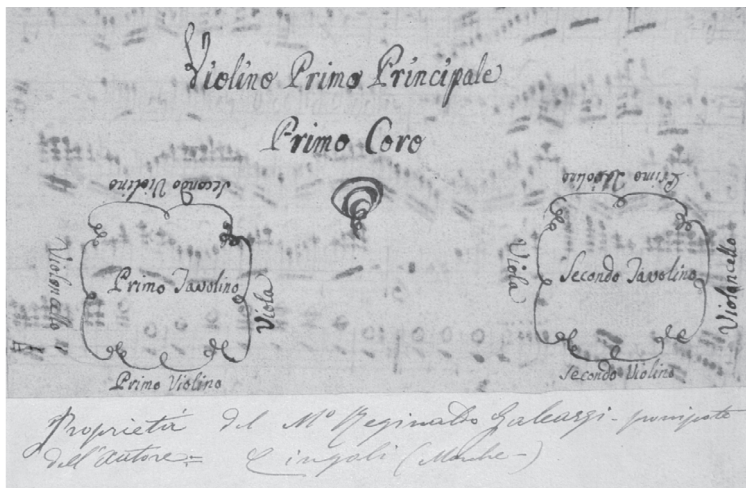 Violino Primo Principale
Primo Coro
Secondo Violino
Violoncello
Primo Tavolino
Viola
Primo Violino
Primo Violino
Viola
Secondo Tavolino
Violoncello
Secondo Violino
Proprietà del Mº Reginaldo Galeazzi - pronipote
dell'autore = Cingoli (Marche -)